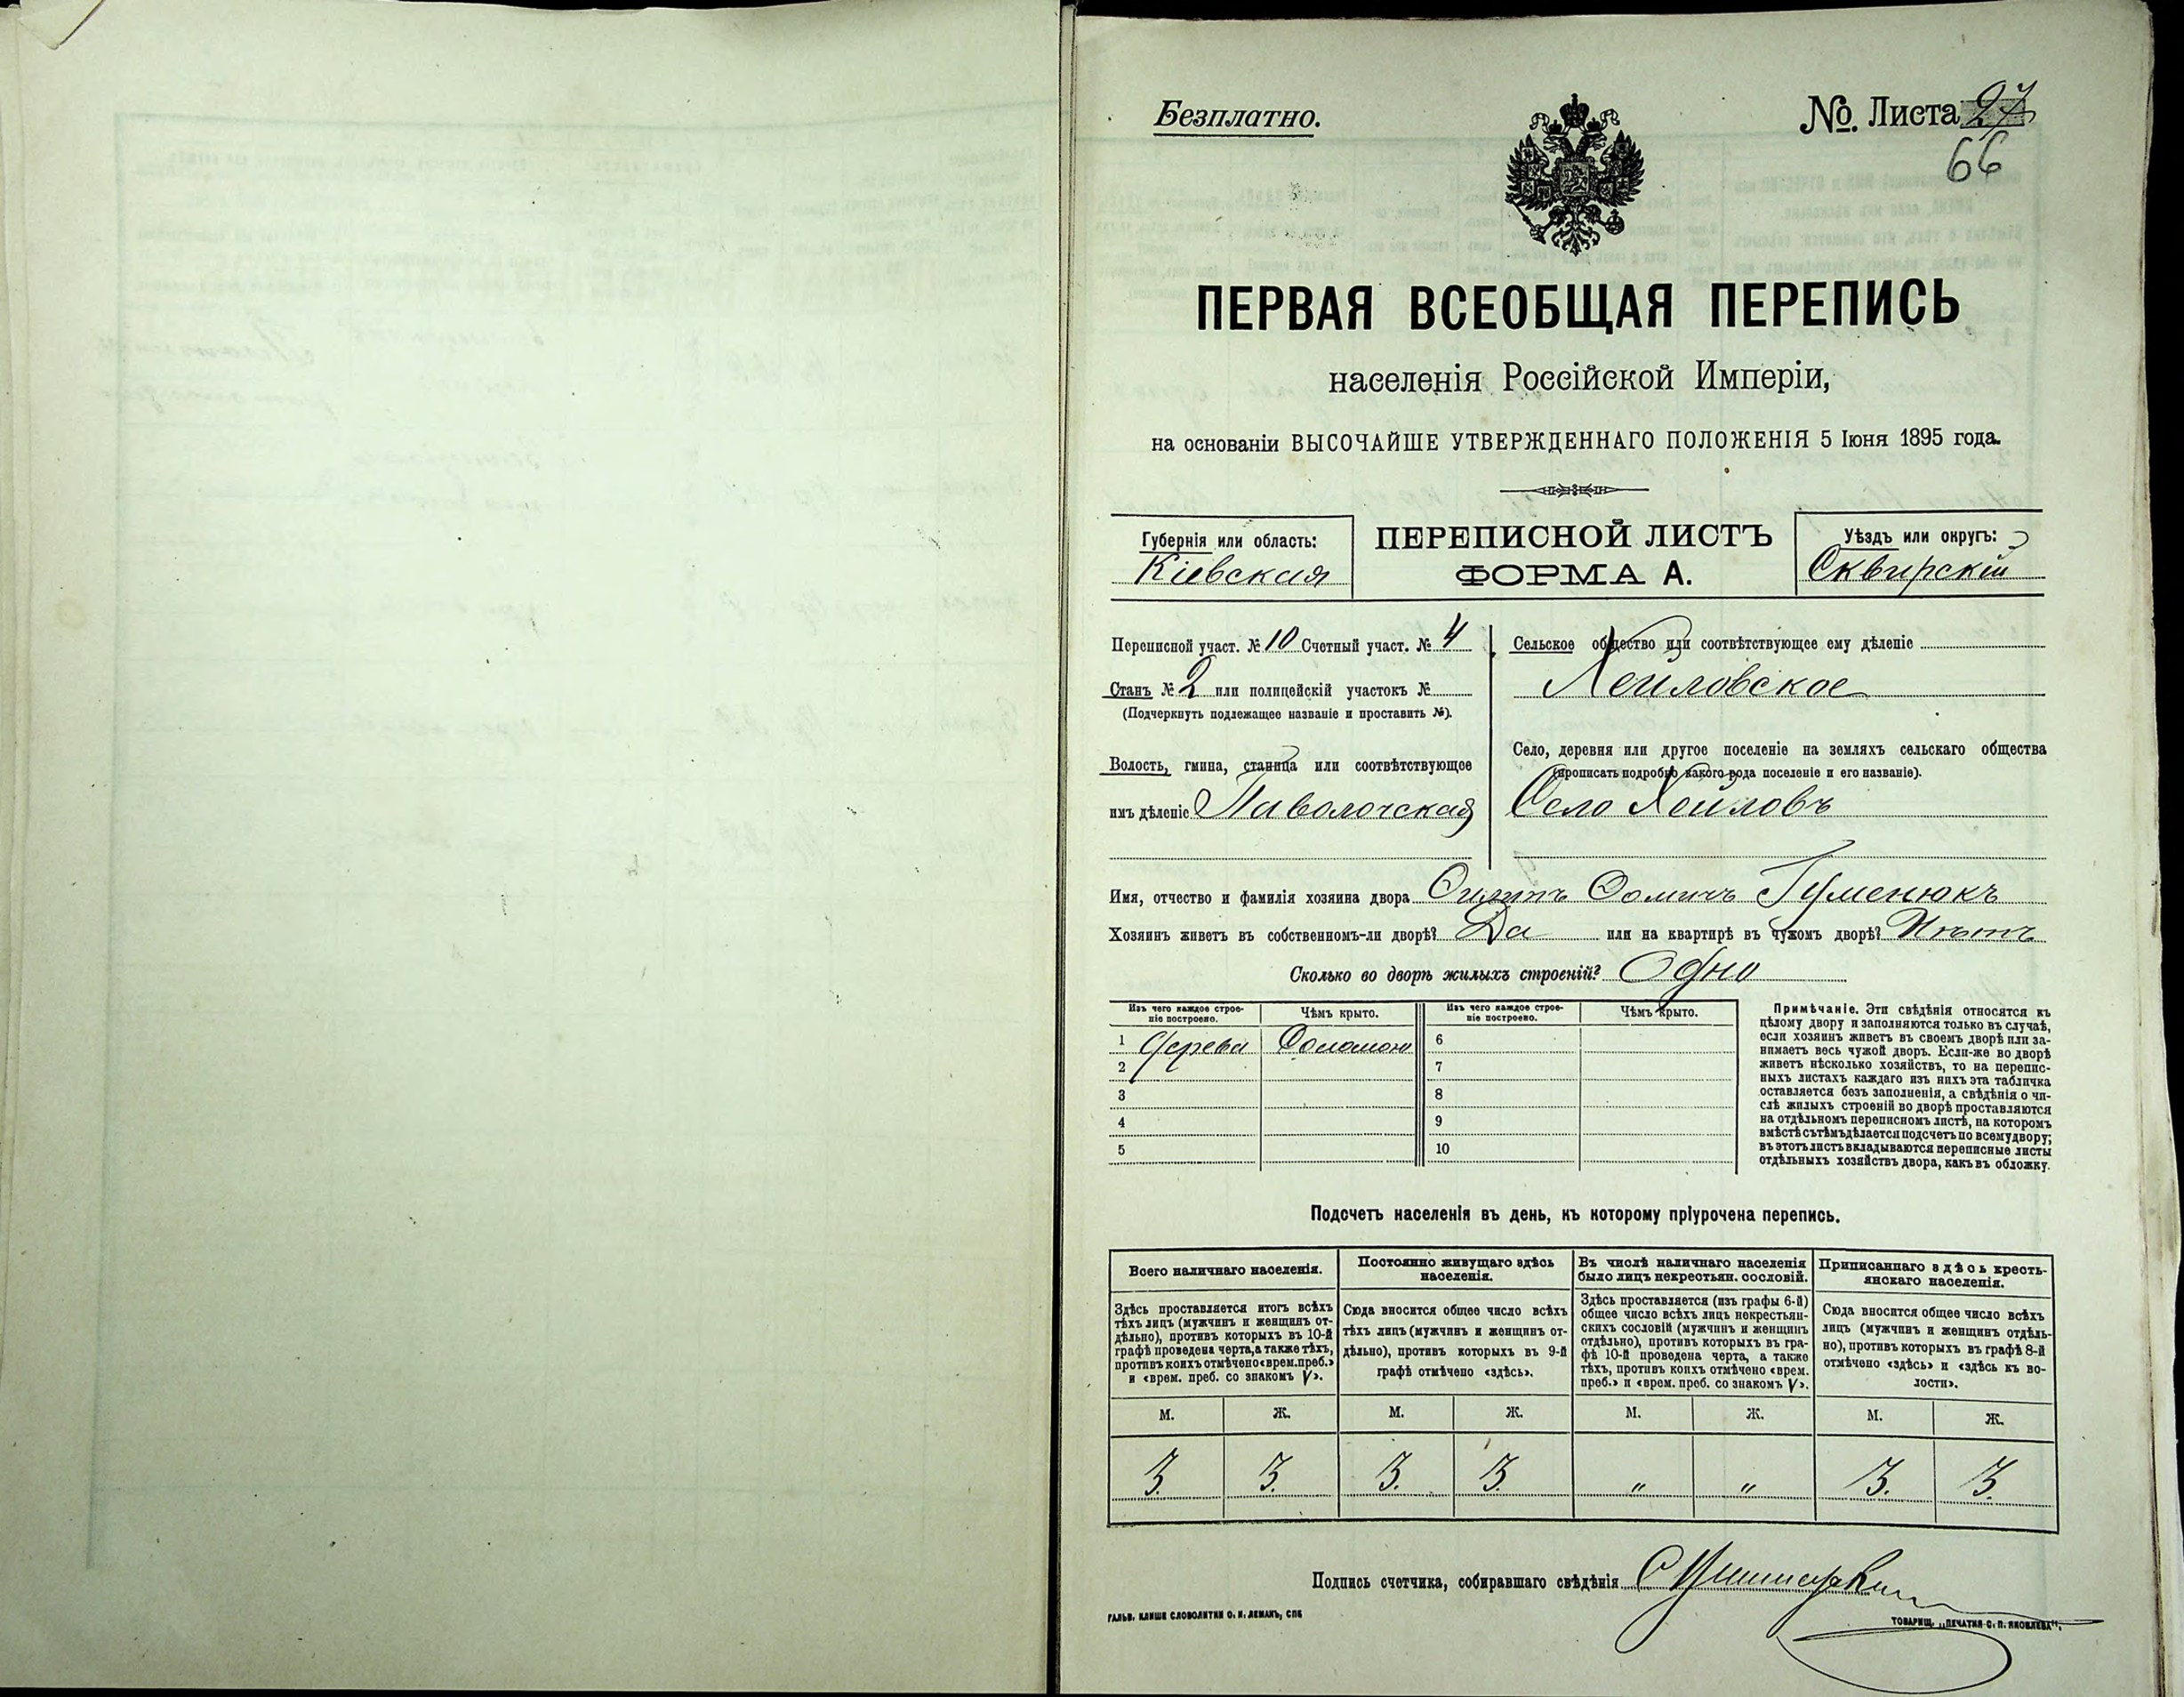 Безплатно.
№ Листа 27
66
ПЕРВАЯ ВСЕОБЩАЯ ПЕРЕПИСЬ
населенія Россійской Имперіи,
на основаніи ВЫСОЧАЙШЕ УТВЕРЖДЕННАГО ПОЛОЖЕНІЯ 5 Іюня 1895 года.
Губернія или область:
Кіевская
ПЕРЕПИСНОЙ ЛИСТЪ
ФОРМА А.
Уѣздъ или округъ:
Сквирскій
Переписной участ. № 10 Счетный участ. № 4
Станъ № 2 или полицейскій участокъ №
(Подчеркнуть подлежащее названіе и проставить №).
Волость, гмина, станица или соотвѣтствующее
имъ дѣленіе Паволочская
Сельское общество или соотвѣтствующее ему дѣленіе
Хейловское
Село, деревня или другое поселеніе на земляхъ сельскаго общества
(прописать подробно какого рода поселеніе и его названіе).
Село Хейловъ
Имя, отчество и фамилія хозяина двора Гуменюкъ
Хозяинъ живетъ въ собственномъ-ли дворѣ? Да или на квартирѣ въ чужомъ дворѣ? Нѣтъ
Сколько во дворѣ жилыхъ строеній? Одно
Изъ чего каждое строе-
ніе построено.
Чѣмъ крыто.
Изъ чего каждое строе-
ніе построено.
Чѣмъ крыто.
1 Дерева Соломою 6
2 7
3 8
4 9
5 10
Примѣчаніе. Эти свѣдѣнія относятся къ
цѣлому двору и заполняются только въ случаѣ,
если хозяинъ живетъ въ своемъ дворѣ или за-
нимаетъ весь чужой дворъ. Если-же во дворѣ
живетъ нѣсколько хозяйствъ, то на перепис-
ныхъ листахъ каждаго изъ нихъ эта табличка
оставляется безъ заполненія, а свѣдѣнія о чи-
слѣ жилыхъ строеній во дворѣ проставляются
на отдѣльномъ переписномъ листѣ, на которомъ
вмѣстѣ съ тѣмъ дѣлается подсчетъ по всему двору;
въ этотъ листъ вкладываются переписные листы
отдѣльныхъ хозяйствъ двора, какъ въ обложку.
Подсчетъ населенія въ день, къ которому пріурочена перепись.
Всего наличнаго населенія.
Постоянно живущаго здѣсь
населенія.
Въ числѣ наличнаго населенія
было лицъ некрестьян. сословій.
Приписаннаго здѣсь кресть-
янскаго населенія.
Здѣсь проставляется итогъ всѣхъ
тѣхъ лицъ (мужчинъ и женщинъ от-
дѣльно), противъ которыхъ въ 10-й
графѣ проведена черта, а также тѣхъ,
противъ коихъ отмѣчено «врем. преб.»
и «врем. преб. со знакомъ V».
Сюда вносится общее число всѣхъ
тѣхъ лицъ (мужчинъ и женщинъ от-
дѣльно), противъ которыхъ въ 9-й
графѣ отмѣчено «здѣсь».
Здѣсь проставляется (изъ графы 6-й)
общее число всѣхъ лицъ некрестьян-
скихъ сословій (мужчинъ и женщинъ
отдѣльно), противъ которыхъ въ гра-
фѣ 10-й проведена черта, а также
тѣхъ, противъ коихъ отмѣчено «врем.
преб.» и «врем. преб. со знакомъ V».
Сюда вносится общее число всѣхъ
лицъ (мужчинъ и женщинъ отдѣль-
но), противъ которыхъ въ графѣ 8-й
отмѣчено «здѣсь» и «здѣсь къ во-
лости».
М. Ж. М. Ж. М. Ж. М. Ж.
3. 3. 3. 3. " " 3. 3.
Подпись счетчика, собиравшаго свѣдѣнія
ГАЛЬВ. КЛИШЕ СЛОВОЛИТНИ О. И. ЛЕМАНЪ, СПБ
ТОВАРИЩ. „ПЕЧАТНЯ С. П. ЯКОВЛЕВА".